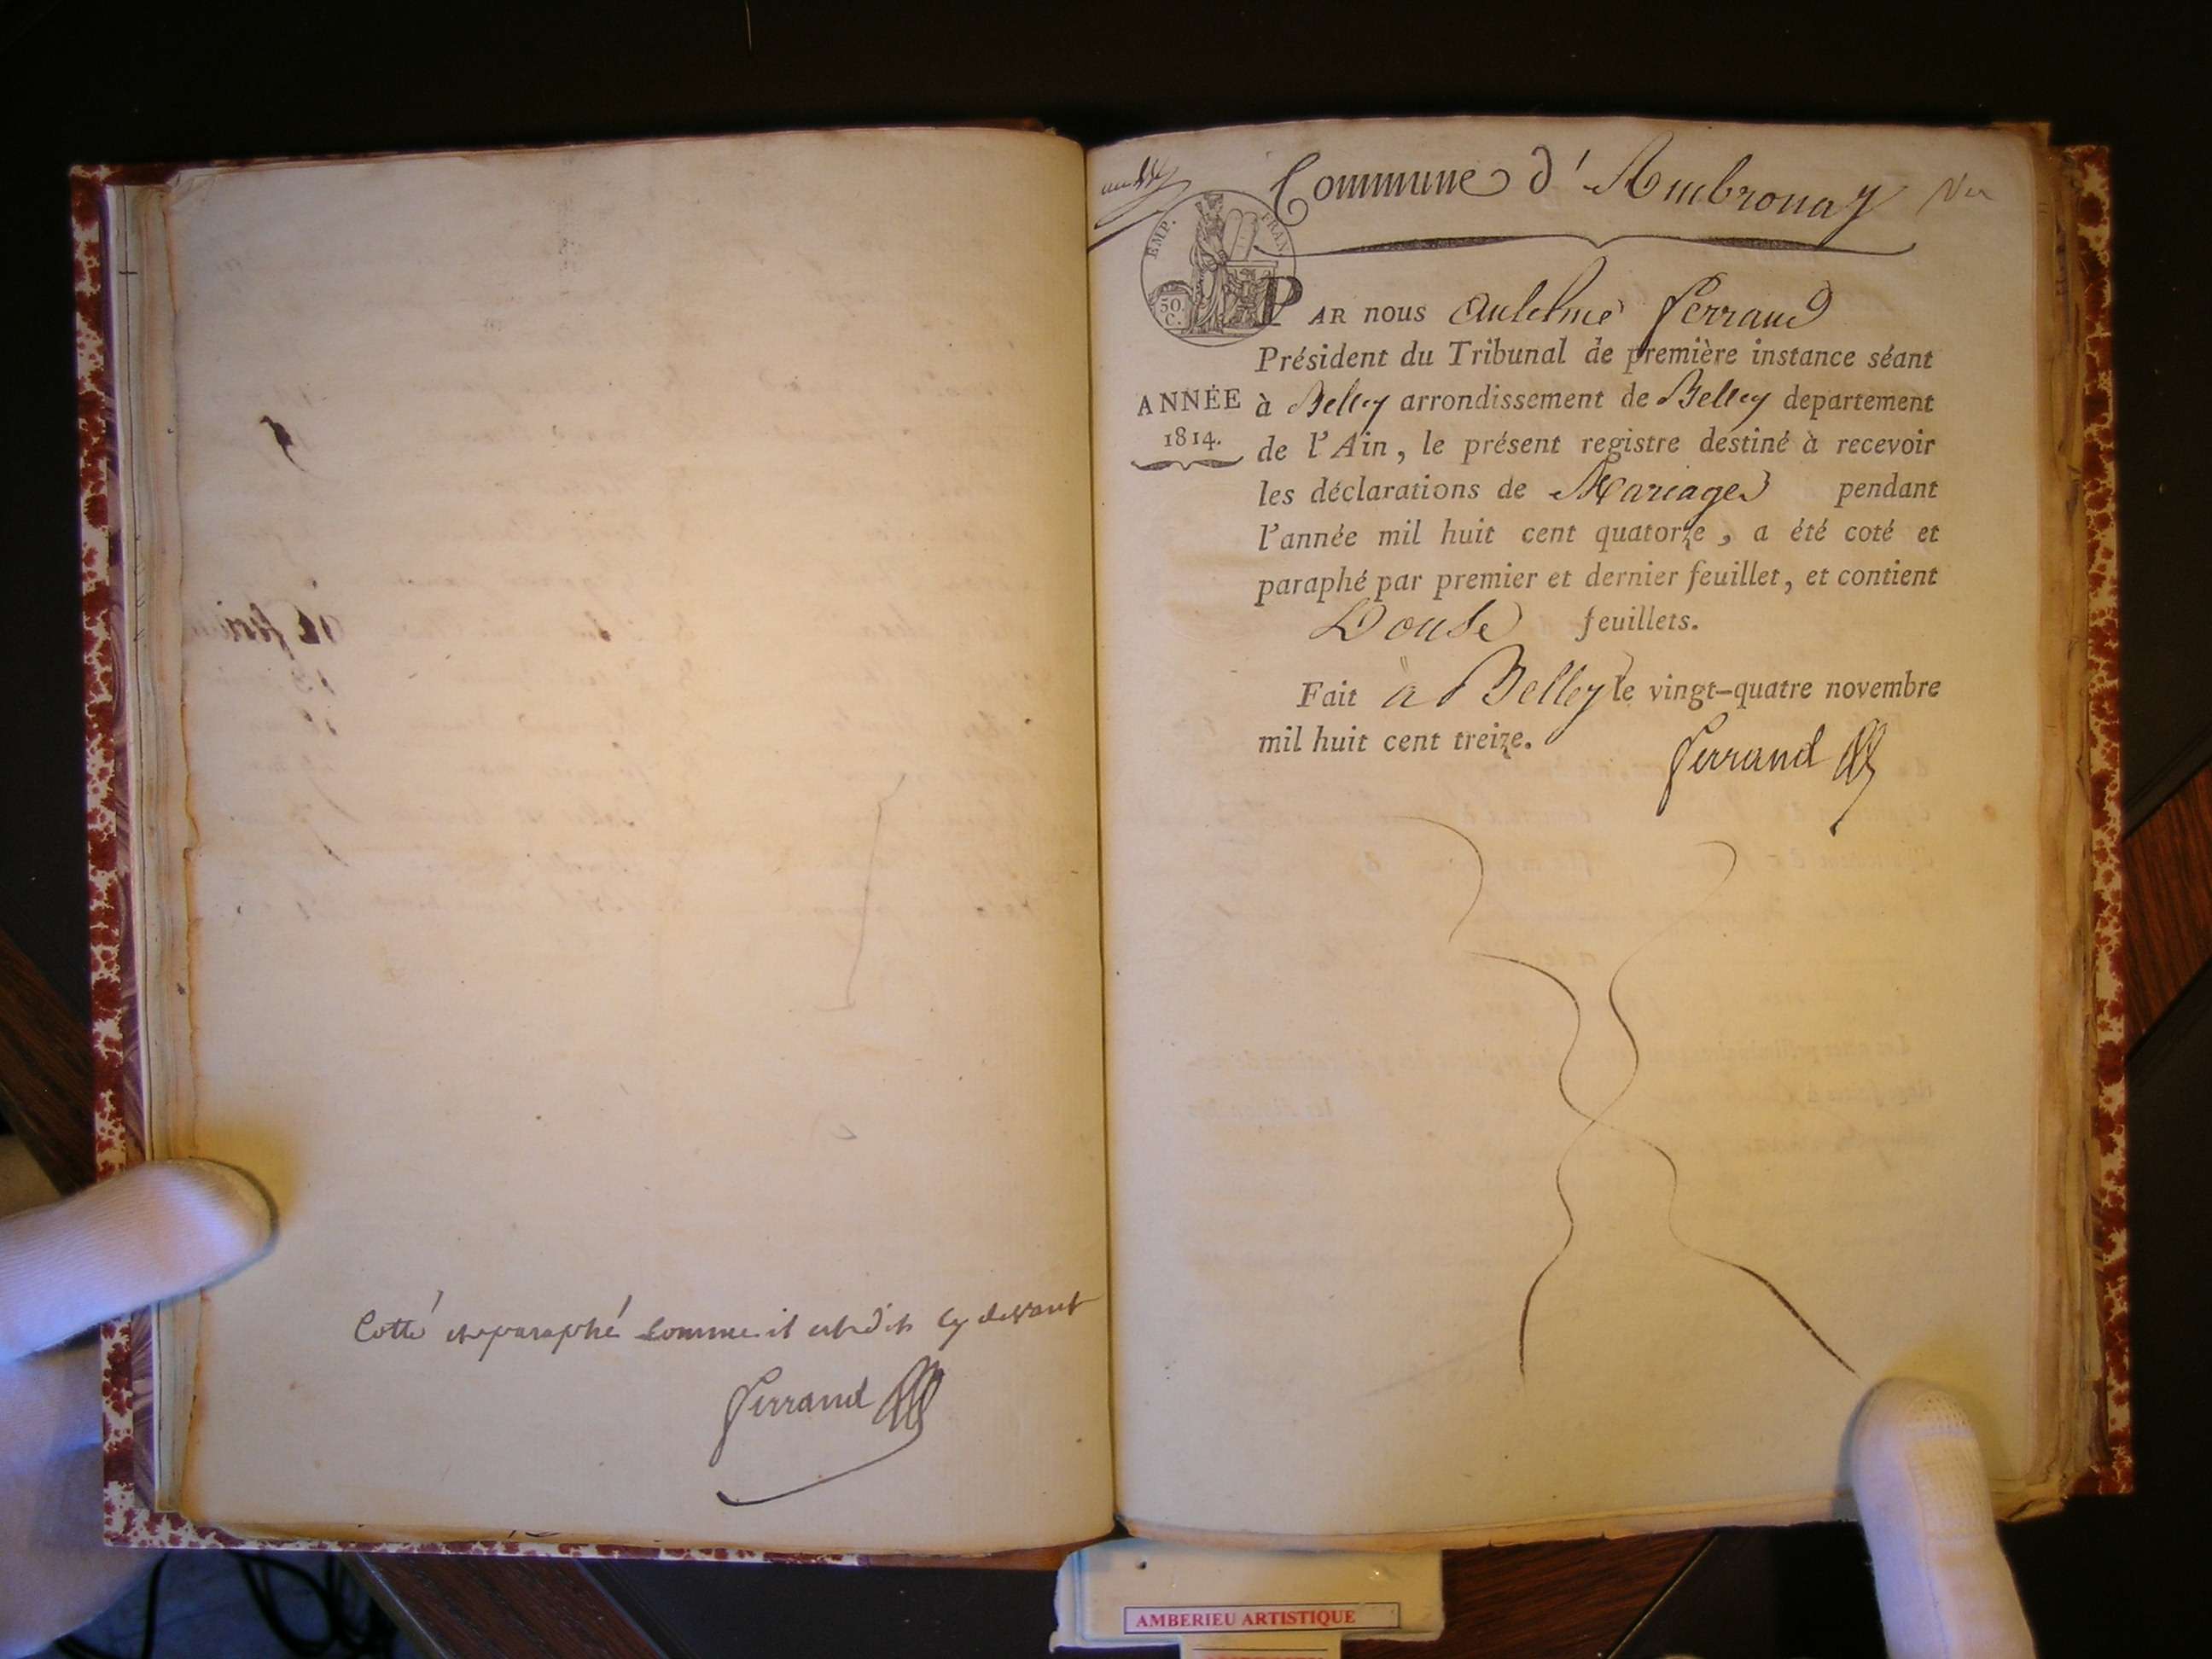 Cotté et paraphé comme il est dit cy devant
Ferrand
Commune d'Ambronay
EMP. FRAN
50
C.
PAR nous Anthelme Ferrand
Président du Tribunal de première instance séant
ANNÉE
1814.
à Belley arrondissement de Belley departement
de l'Ain, le présent registre destiné à recevoir
les déclarations de Mariages pendant
l'année mil huit cent quatorze, a été coté et
paraphé par premier et dernier feuillet, et contient
Douse feuillets.
Fait à Belley le vingt-quatre novembre
mil huit cent treize.
Ferrand
AMBERIEU ARTISTIQUE